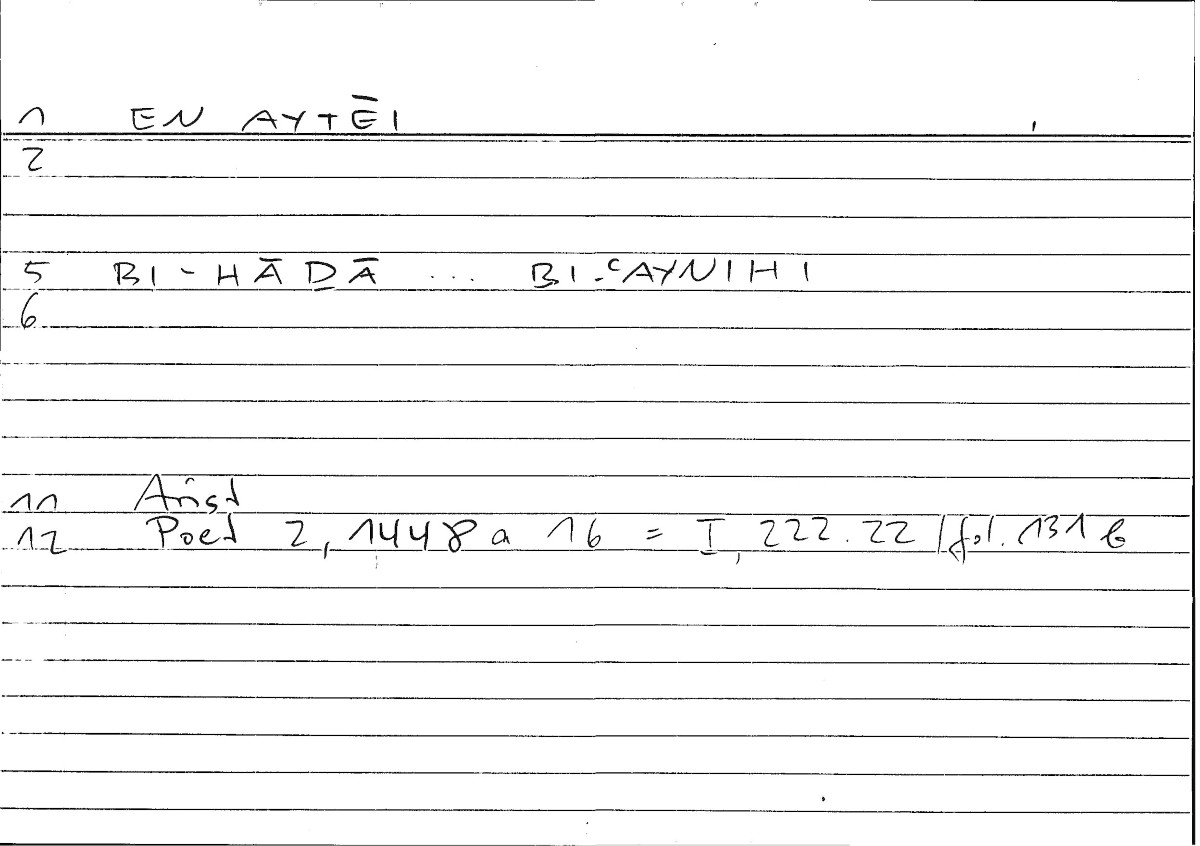 1 EN AYTĒI
2
5 BI-HĀḎĀ ... BI-ʿAYNIHI
6
11 Arist
12 Poet 2, 1448 a 16 = I, 222.22 / fol. 131 b